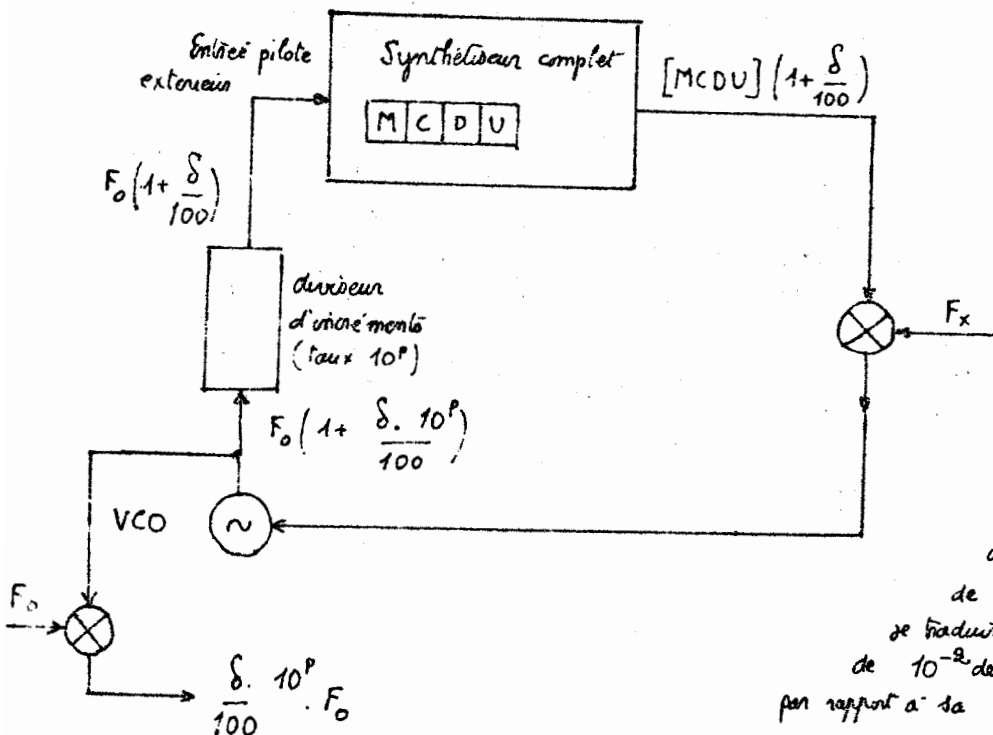 Entrée pilote
exterieur
Synthétiseur complet
M C D U
[MCDU] (1 + δ/100)
F₀ (1 + δ/100)
diviseur
d'incréments
(taux 10ᵖ)
Fₓ
F₀ (1 + δ. 10ᵖ/100)
VCO
~
F₀
δ. 10ᵖ/100 . F₀
de
se traduit
de 10⁻² de
par rapport à sa